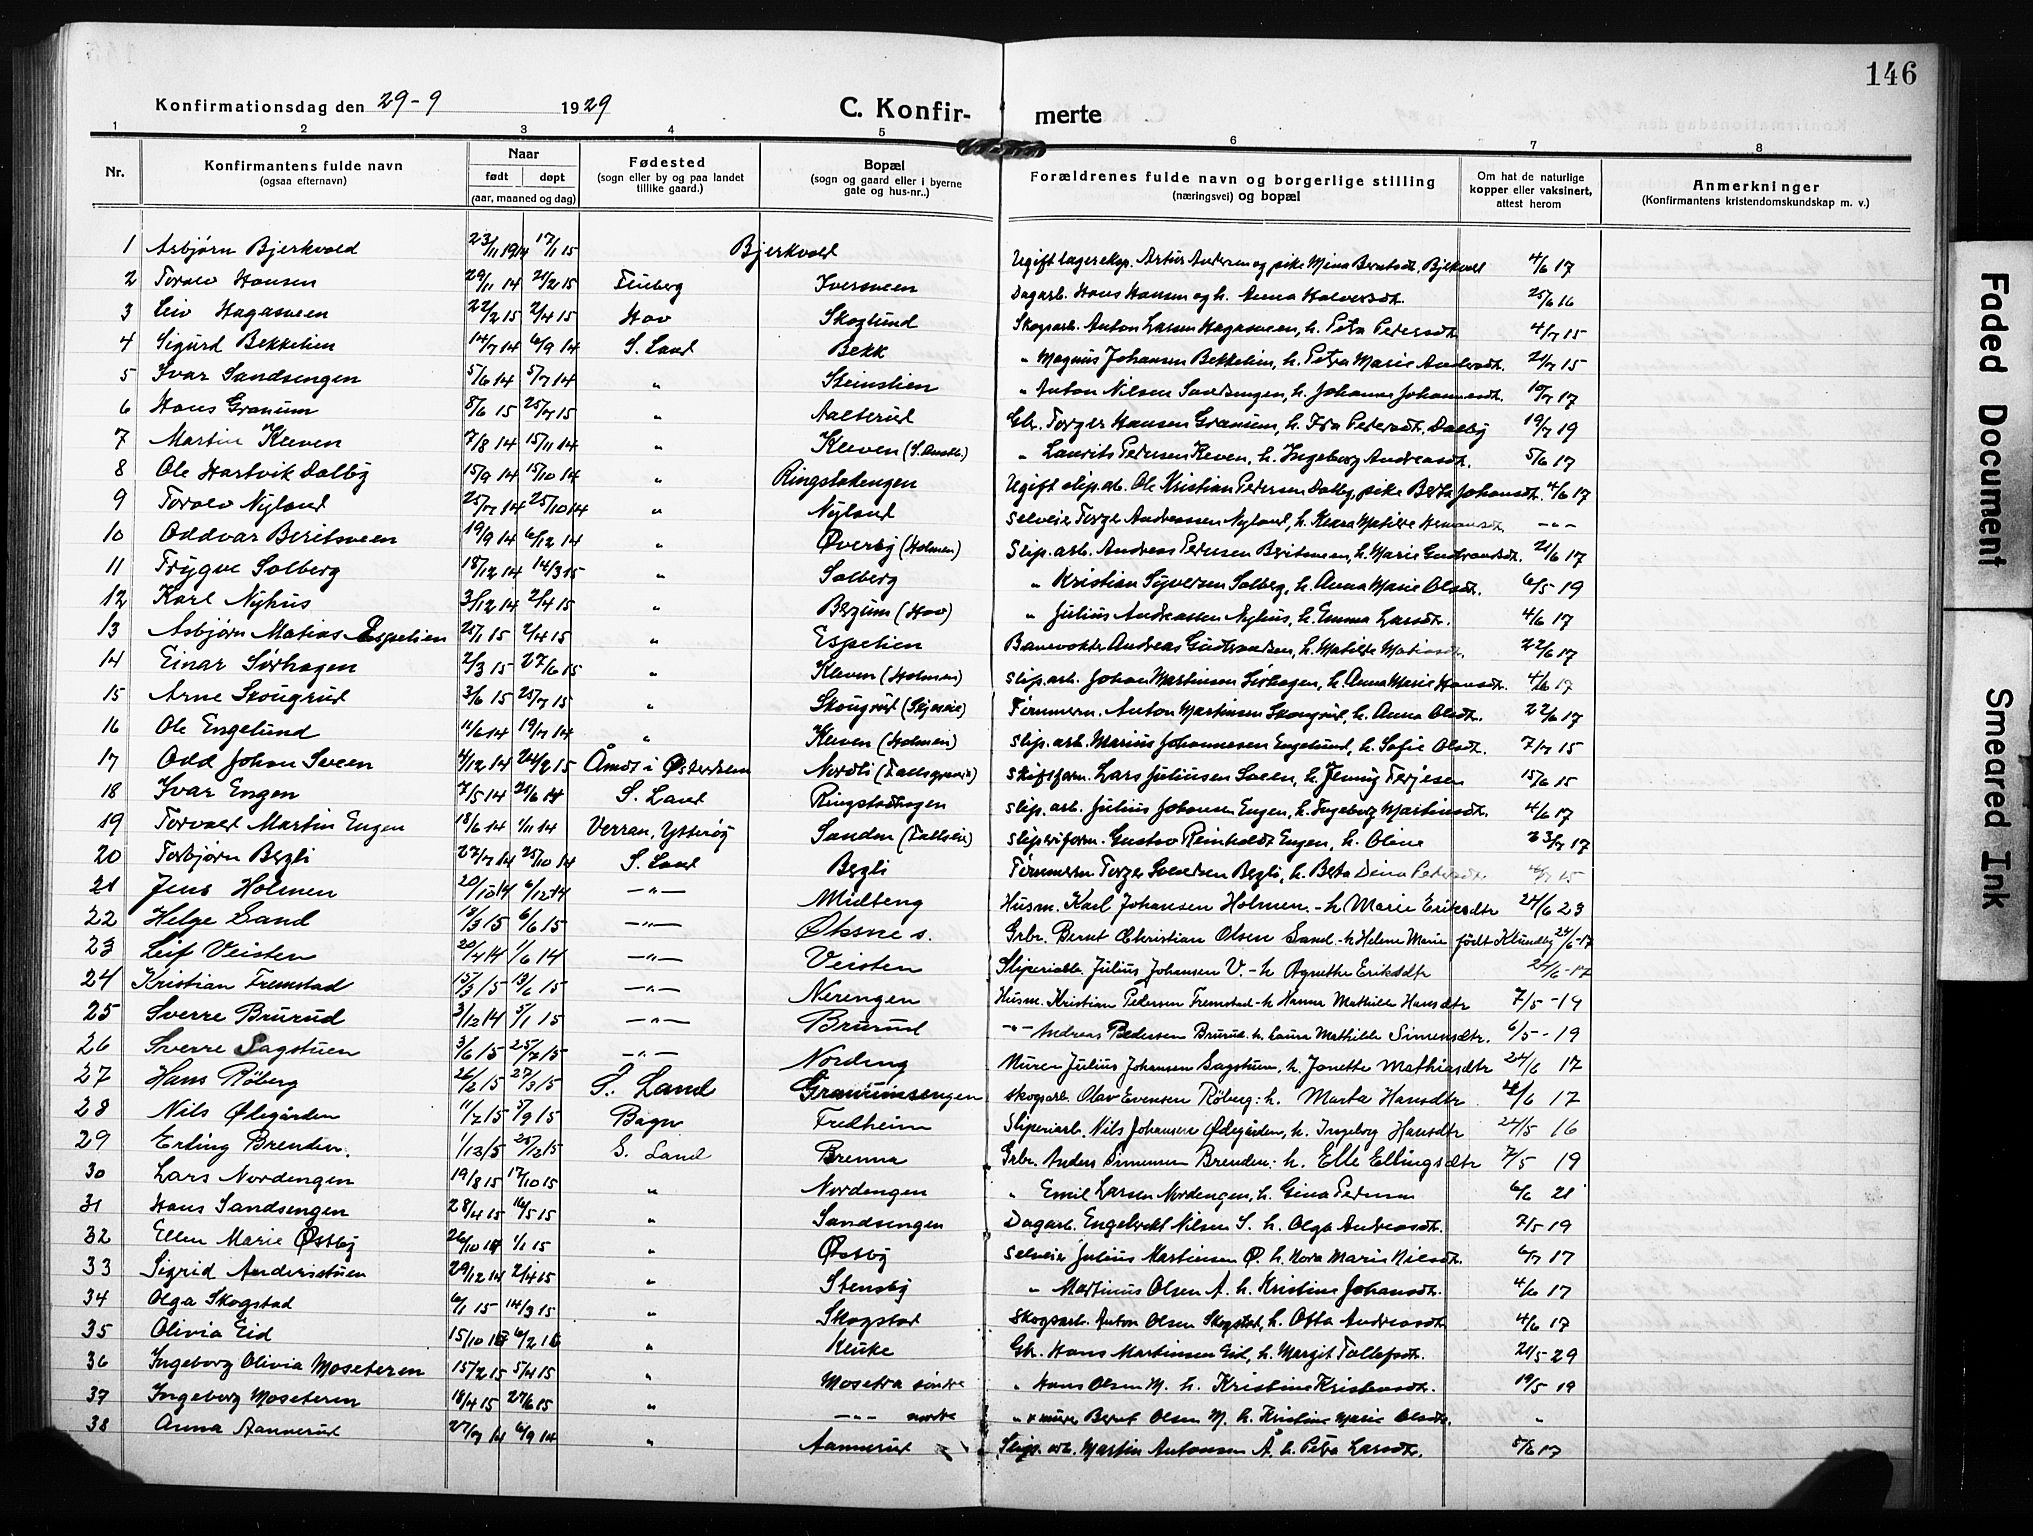 146
Konfirmationsdag den 29-9 1929
C. Konfir- merte
1 2 3 4 5 6 7 8
Nr. Konfirmantens fulde navn (ogsaa efternavn) Naar født døpt (aar, maaned og dag) Fødested (sogn eller by og paa landet tillike gaard.) Bopæl (sogn og gaard eller i byerne gate og hus-nr.) Forældrenes fulde navn og borgerlige stilling (næringsvei) og bopæl Om hat de naturlige kopper eller vaksinert, attest herom Anmerkninger (Konfirmantens kristendomskundskap m. v.)
1 Asbjørn Bjerkvold 23/11 1914 17/1 15 Bjerkvold Ugift lagereksp. Artur Andersen og pike Mina Berntsdt. 4/6 17
2 Torolv Hansen 29/11 14 21/2 15 Fluberg Iversveen Dagarb. Hans Hansen og h. Anna Halvorsdt. 25/6 16
3 Leiv Hagasveen 22/2 15 2/4 15 Hov Skoglund Skogsarb. Anton Larsen Hagasveen, h. Petra Pedersdt. 4/7 15
4 Sigurd Bekkelien 14/7 14 6/9 14 S. Land Bekk " Magnus Johansen Bekkelien, h. Petra Marie Andersdt. 21/7 15
5 Ivar Sandsengen 5/6 14 5/7 14 " Steinslien " Anton Nilsen Sandsengen, h. Johanne Johannesdt. 10/7 17
6 Hans Granum 8/6 15 25/7 15 " Aalterud Gbr. Torger Hansen Granum, h. Pedersdt. Dalby 19/7 19
7 Martin Kleven 7/8 14 15/11 14 " Kleven " Laurits Pedersen Kleven, h. Ingeborg Andreasdt. 5/6 17
8 Ole Hartvik Dalby 15/9 14 15/10 14 " Ringstadengen Ugift slip.arb. Ole Kristian Pedersen Dalby, pike Berta Johansdt. 4/6 17
9 Torolv Nyland 25/7 14 25/10 14 " Nyland Selveier Torger Andreassen Nyland, h. Klara Matilde -"-
10 Oddvar Beritsveen 19/9 14 6/12 14 " Øverby (Holmen) Slip. arb. Andreas Pedersen Beritsveen, h. Marie Gudbrandsdt. 21/6 17
11 Trygve Solberg 18/12 14 14/3 15 " Solberg " Kristian Syversen Solberg, h. Anna Marie Olsdt. 6/5 19
12 Karl Nyhus 31/12 14 2/4 15 " Bergum (Hov) " Julius Andreassen Nyhus, h. Emma Larsdt. 4/6 17
13 Asbjørn Matias Espelien 25/1 15 2/4 15 " Espelien Banevokter Andreas Gudbrandsen, h. Matilde Matiasdt. 22/6 17
14 Einar Sørhagen 2/3 15 27/6 15 " Kleven (Holmen) Slip.arb. Johan Martinsen Sørhagen, h. Anna Marie Hansdt. 4/6 17
15 Arne Skougrud 3/6 15 25/7 15 " Skougrud Tømmerm. Anton Martinsen Skougrud, h. Anna Olsdt. 22/6 17
16 Ole Engelund 11/6 14 19/7 14 " Kleven (Holmen) Slip. arb. Marius Johannesen Engelund, h. Sofie Olsdt. 7/7 15
17 Odd Johan Sveen 4/12 14 24/2 15 Åmot i Østerdalen Nordli Skiftform. Lars Juliussen Sveen, h. Jenny Terjesen 15/6 15
18 Ivar Engen 7/5 14 25/6 14 S. Land Ringstadhagen Slip. arb. Julius Johansen Engen, h. Ingeborg Martinsdt. 4/6 17
19 Torvald Martin Engen 18/6 14 1/11 14 Verran, Ytterøy Sanden Sliperiform. Gustav Reinholdt Engen, h. Oline 23/7 17
20 Torbjørn Bergli 27/7 14 25/10 14 S. Land Bergli Tømmerm Torger Bergli, h. Berta Dina Pedersdt. 15
21 Jens Holmen 20/10 14 6/12 14 -"- Midteng Husm. Karl Johansen Holmen. - h Marie Eriksdtr 24/6 23
22 Helge Sand 18/3 15 6/6 15 -"- Øksne s. Grbr. Bernt Christian Olsen Sand - h Helene Marie født Klundby 24/6-17
23 Leif Veisten 20/4 14 1/6 14 -"- Veisten Sliperiarb. Julius Johansen V. - h Agnethe Eriksdtr 24/6-17
24 Kristian Fremstad 15/3 15 13/6 15 -"- Nerengen Husm. Kristian Pedersen Fremstad - h Hanna Mathilde Hansdtr 7/5 -19
25 Sverre Brurud 3/12 14 5/1 15 -"- Brurud -"- Andreas Pedersen Brurud. h. Laura Mathilde Simensdtr. 6/5 - 19
26 Sverre Sagstuen 3/6 15 25/7 15 -"- Nordeng Murer Julius Johansen Sagstuen, h. Jonette Mathiasdtr 24/6 17
27 Hans Røberg 26/2 15 27/3 15 S. Land Granumsengen Skogsarb. Olav Evensen Røberg: h. Marta Hansdtr 21/6 17
28 Nils Ødegården 11/7 15 5/9 15 Bagn Fredheim Sliperiarb. Nils Johansen Ødegården, h. Ingeborg Hansdtr 24/5 16
29 Erling Brenden. 1/12 15 25/12 15 S. Land Brenna Grbr. Anders Simensen Brenden: h. Elle Ellingsdtr 7/5 19
30 Lars Nordengen 19/8 15 17/10 15 " Nordengen " Emil Larsen Nordengen, h. Gina Pedersen 6/6 21
31 Hans Sandsengen 28/4 15 16/5 15 " Sandsengen Dagarb. Engebrekt Nilsen S. h. Olga Andreasdt. 7/5 19
32 Ellen Marie Østby 26/10 14 1/1 15 " Østby Selveier Julius Martinsen Ø. h. Nora Marie Nilsdt. 6/7 17
33 Sigrid Anderstuen 29/12 14 2/4 15 " Stensby " Martinus Olsen A. h. Kristine Johansdt. 4/6 17
34 Olga Skogstad 6/1 15 14/3 15 " Skogstad Skogsarb. Anton Olsen Skogstad, h. Otta Andreasdt. 4/6 17
35 Olivia Eid 15/10 6/2 " Kluke Gbr. Hans Martinsen Eid, h. Margit Tollefsdt. 21/5 29
36 Ingeborg Olivia Moseteren 15/2 15 5/4 15 " Mosetra søndre " Hans Olsen M. h. Kristine Kristensdt. 19/5 19
37 Ingeborg Moseteren 18/4 15 27/6 15 " -"- nordre " murer Bernt Olsen M. h. Kristine Marie Olsdt. "
38 Anna Aannerud 27/7 14 6/9 14 " Aannerud Slip. arb. Martin Antonsen Å. h. Petra Larsdt. 5/6 17
Faded Document
Smeared Ink